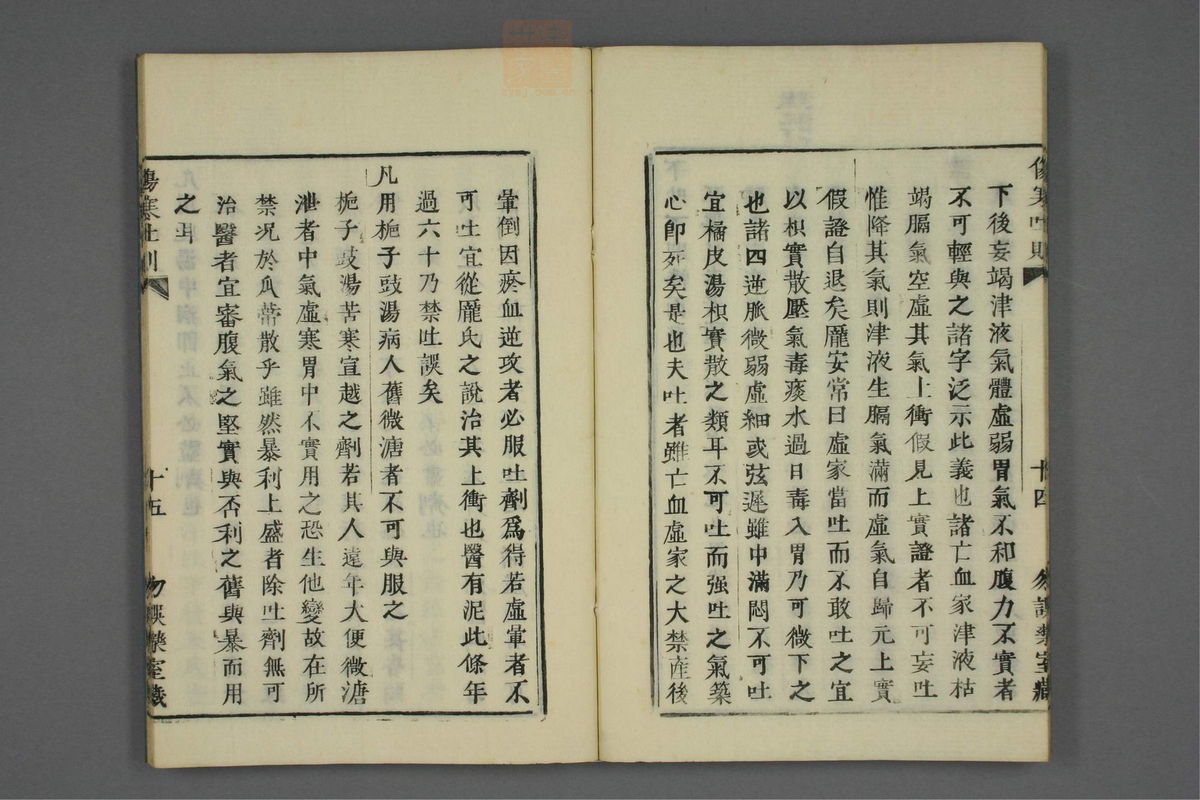 傷寒吐則 十四
下後妄竭津液氣體虛弱胃氣不和腹力不實者
不可輕與之諸字泛示此義也諸亡血家津液枯
竭膈氣空虛其氣上衝假見上實證者不可妄吐
惟降其氣則津液生膈氣滿而虛氣自歸元上實
假證自退矣龐安常曰虛家當吐而不敢吐之宜
以枳實散壓氣毒痰水過日毒入胃乃可微下之
也諸四逆脈微弱虛細或弦遲雖中滿悶不可吐
宜橘皮湯枳實散之類耳不可吐而强吐之氣築
心即死矣是也夫吐者雖亡血虛家之大禁産後
暈倒因瘀血逆攻者必服吐劑爲得若虛暈者不
可吐宜從龐氏之說治其上衝也醫有泥此條年
過六十乃禁吐誤矣
凡用梔子豉湯病人舊微溏者不可與服之
梔子豉湯苦寒宣越之劑若其人遠年大便微溏
泄者中氣虛寒胃中不實用之恐生他變故在所
禁况於瓜蒂散乎雖然暴利上盛者除吐劑無可
治醫者宜審腹氣之堅實與否利之舊與暴而用
之耳
傷寒吐則 十五 勿誤藥室藏